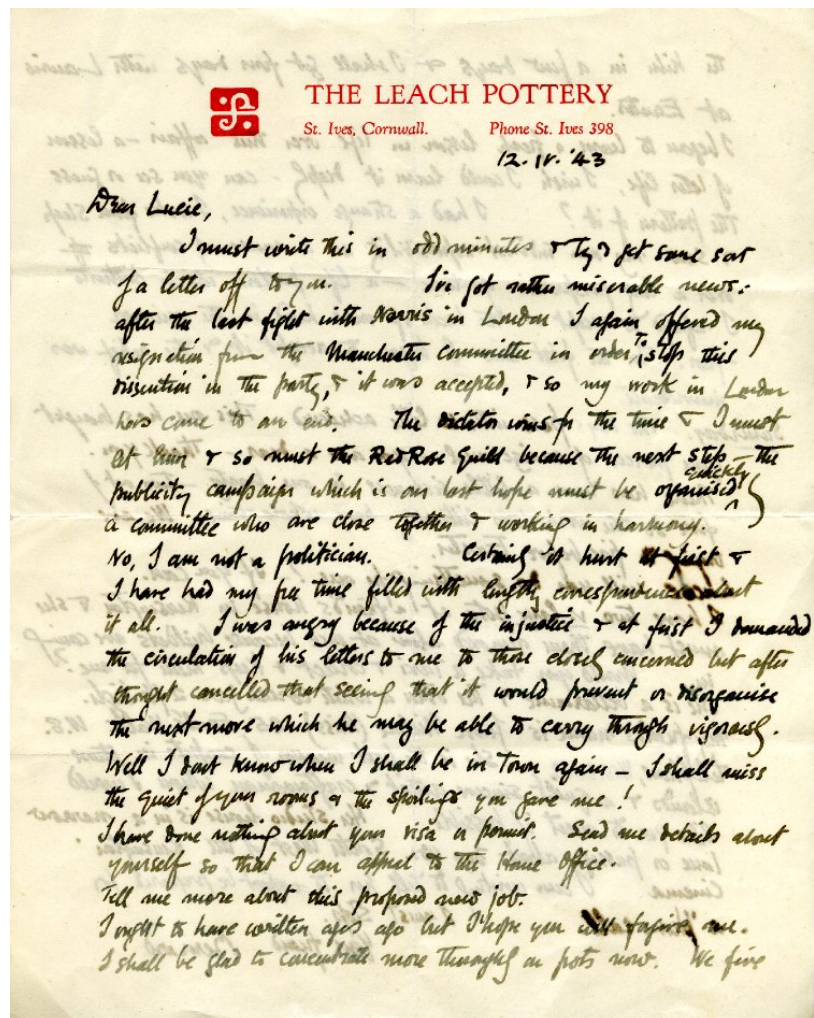 THE LEACH POTTERY
St. Ives, Cornwall. Phone St. Ives 398
12. IV. '43
Dear Lucie,
I must write this in odd minutes & try & get some sort
of a letter off to you. I've got rather miserable news:
after the last fight with Norris in London I again offered my
resignation from the Manchester committee in order to stop this
dissention in the party, & it was accepted, & so my work in London
has come to an end. The dictator wins for the time & I must
let him & so must the Red Rose Guild because the next step – the
publicity campaign which is our last hope must be organised quickly
a committee who are close together & working in harmony.
No, I am not a politician. Certainly it hurt at first &
I have had my free time filled with lengthy correspondence about
it all. I was angry because of the injustice & at first I demanded
the circulation of his letters to me to those closely concerned but after
thought cancelled that seeing that it would prevent or disorganise
the next move which he may be able to carry through vigorously.
Well I dont know when I shall be in Town again – I shall miss
the quiet of your rooms & the spoilings you gave me!
I have done nothing about your visa or permit. Send me details about
yourself so that I can appeal to the Home Office.
Tell me more about this proposed new job.
I ought to have written ages ago but I hope you will forgive me.
I shall be glad to concentrate more thoroughly on pots now. We fire